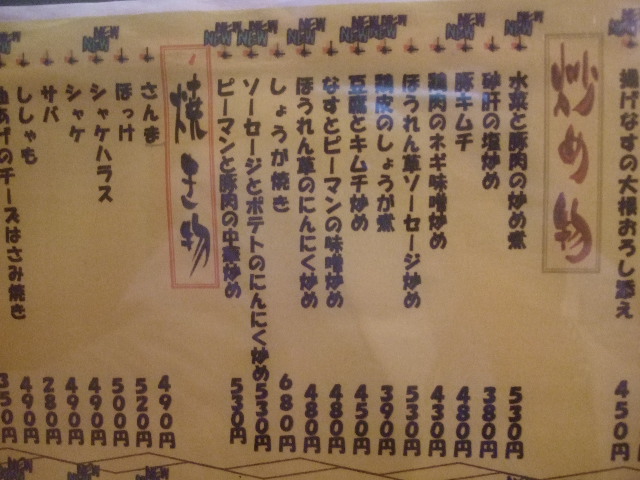 揚げなすの大根おろし添え 450円
炒め物
水菜と豚肉の炒め煮 530円
砂肝の塩炒め 380円
豚キムチ 480円
鶏肉のネギ味噌炒め 430円
ほうれん草ソーセージ炒め 530円
鶏皮のしょうが煮 390円
豆腐とキムチ炒め 450円
なすとピーマンの味噌炒め 480円
ほうれん草のにんにく炒め 480円
しょうが焼き 680円
ソーセージとポテトのにんにく炒め 530円
ピーマンと豚肉の中華炒め 530円
焼き物
さんま 490円
ほっけ 520円
シャケハラス 500円
シャケ 490円
サバ 490円
ししゃも 280円
油あげのチーズはさみ焼き 490円
350円